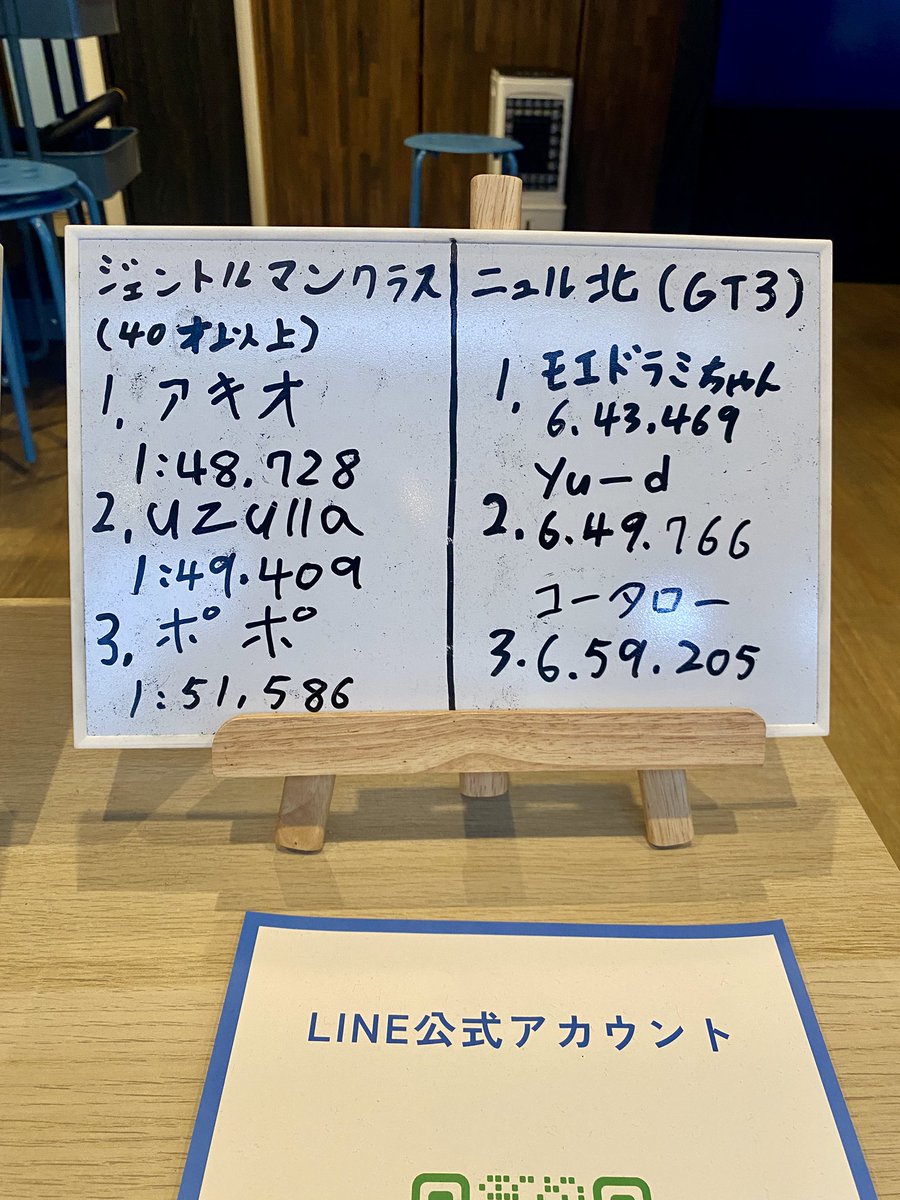 ジェントルマンクラス
(40才以上)
1. アキオ
1:48.728
2. uzulla
1:49.409
3. ポポ
1:51.586
ニュル北(GT3)
1. モエドラミちゃん
6.43.469
Yu-d
2. 6.49.766
コータロー
3. 6.59.205
LINE公式アカウント